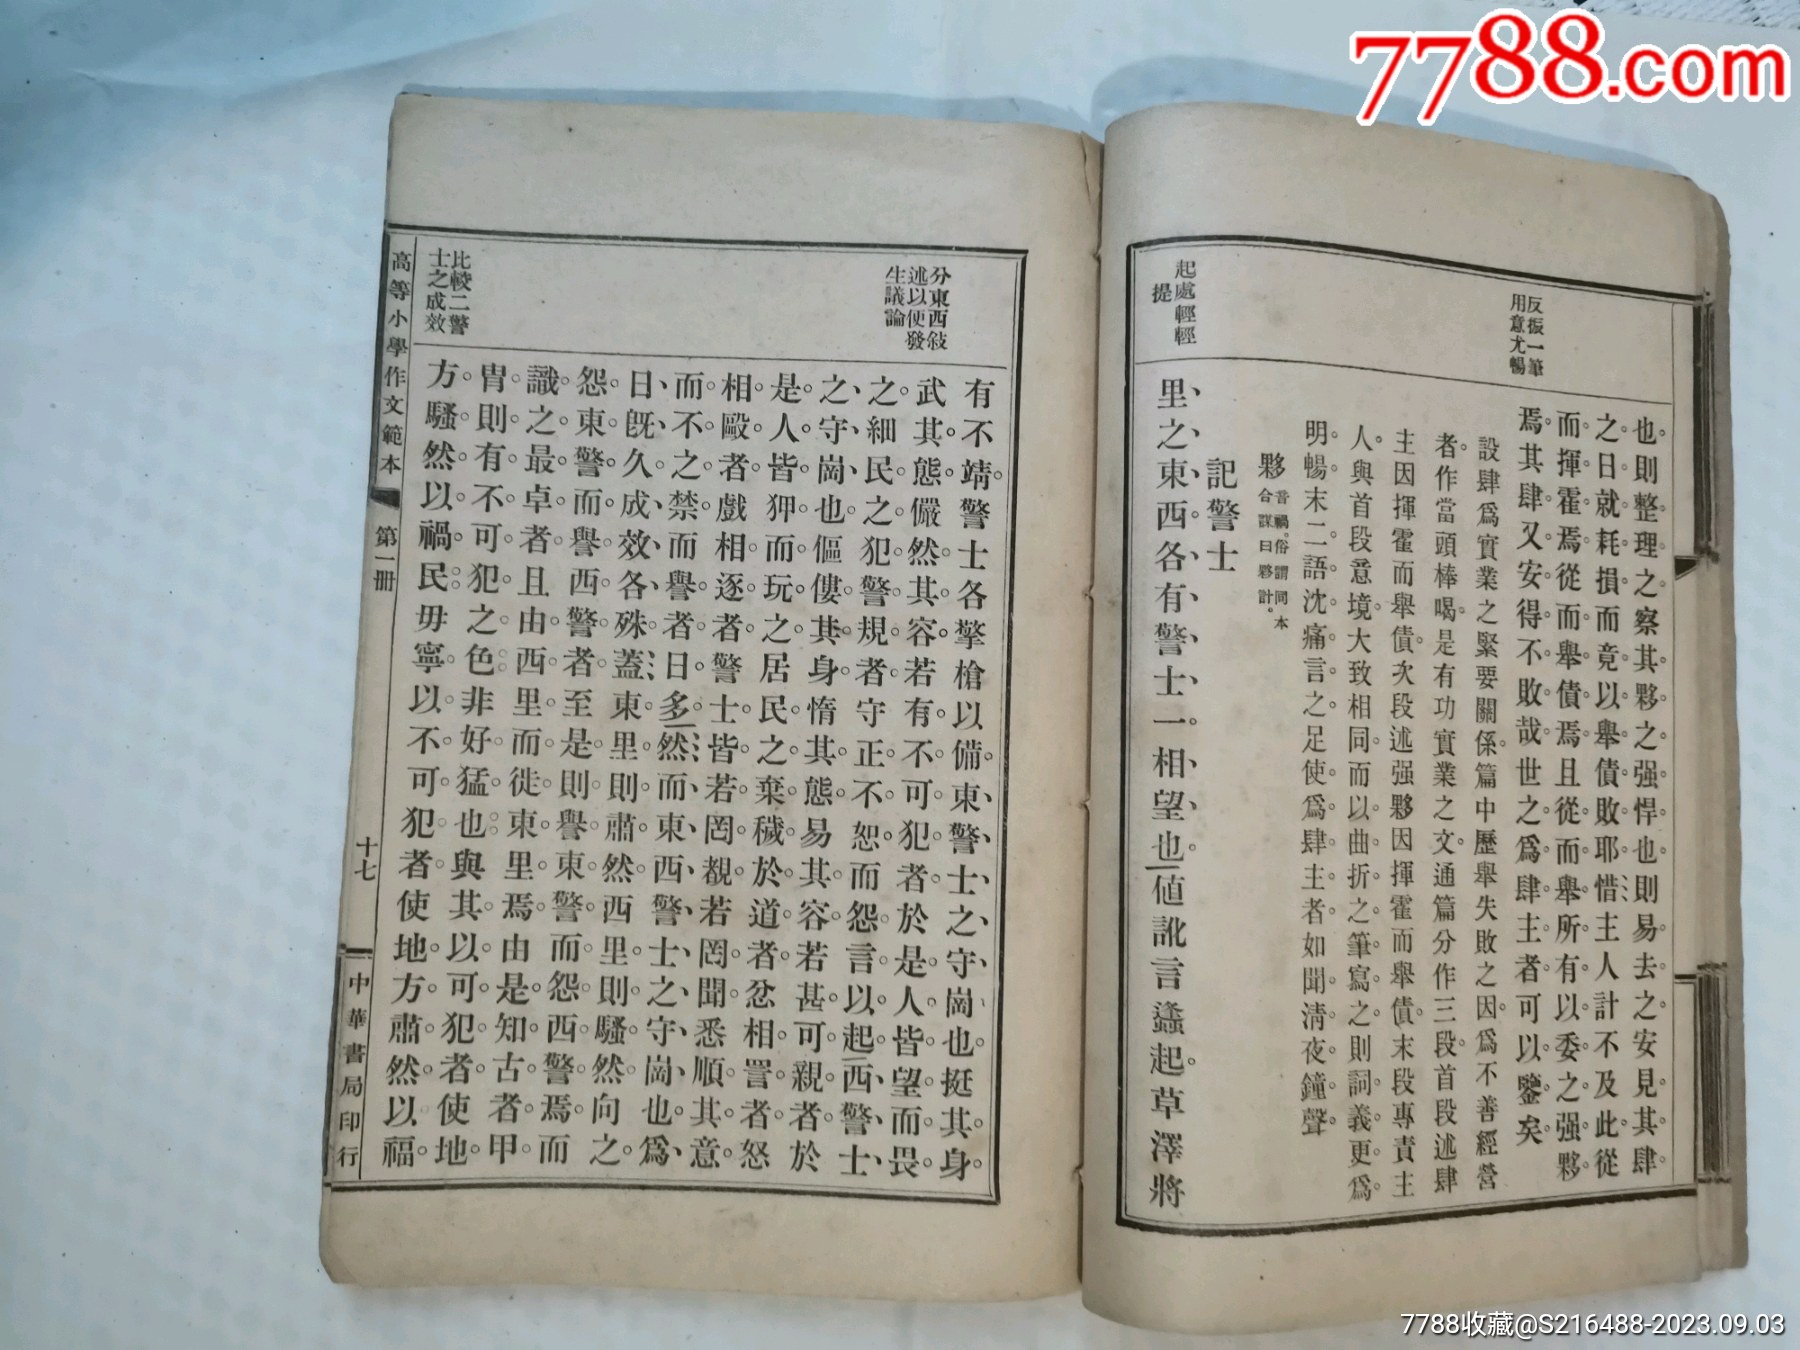 7788.com
反振一筆
用意尤暢
也則整理之察其夥之强悍也則易去之安見其肆
之日就耗損而竟以舉債敗耶惜主人計不及此從
而揮霍焉從而舉債焉且從而舉所有以委之强夥
焉其肆又安得不敗哉世之爲肆主者可以鑒矣
設肆爲實業之緊要關係篇中歷舉失敗之因爲不善經營
者作當頭棒喝是有功實業之文通篇分作三段首段述肆
主因揮霍而舉債次段述强夥因揮霍而舉債末段專責主
人與首段意境大致相同而以曲折之筆寫之則詞義更爲
明暢末二語沈痛言之足使爲肆主者如聞清夜鐘聲
夥音禍。俗謂同本
合謀曰夥計。
記警士
起處輕輕
提
里之東西各有警士一相望也値訛言蠭起草澤將
分東西敍
述以便發
生議論
有不靖警士各擎槍以備東警士之守崗也挺其身
武其態儼然其容若有不可犯者於是人皆望而畏
之細民之犯警規者守正不恕而怨言以起西警士
之守崗也傴僂其身惰其態易其容若甚可親者於
是人皆狎而玩之居民之棄穢於道者忿相詈者怒
相毆者戲相逐者警士皆若罔覩若罔聞悉順其意
而不之禁而譽者日多然而東西警士之守崗也爲
日旣久成效各殊蓋東里則肅然西里則騷然向之
怨東警而譽西警者至是則譽東警而怨西警焉而
識之最卓者且由西里而徙東里焉由是知古者甲
胄則有不可犯之色非好猛也與其以可犯者使地
方騷然以禍民毋寧以不可犯者使地方肅然以福
比較二警
士之成效
高等小學作文範本 第一册 十七 中華書局印行
7788收藏@S216488-2023.09.03